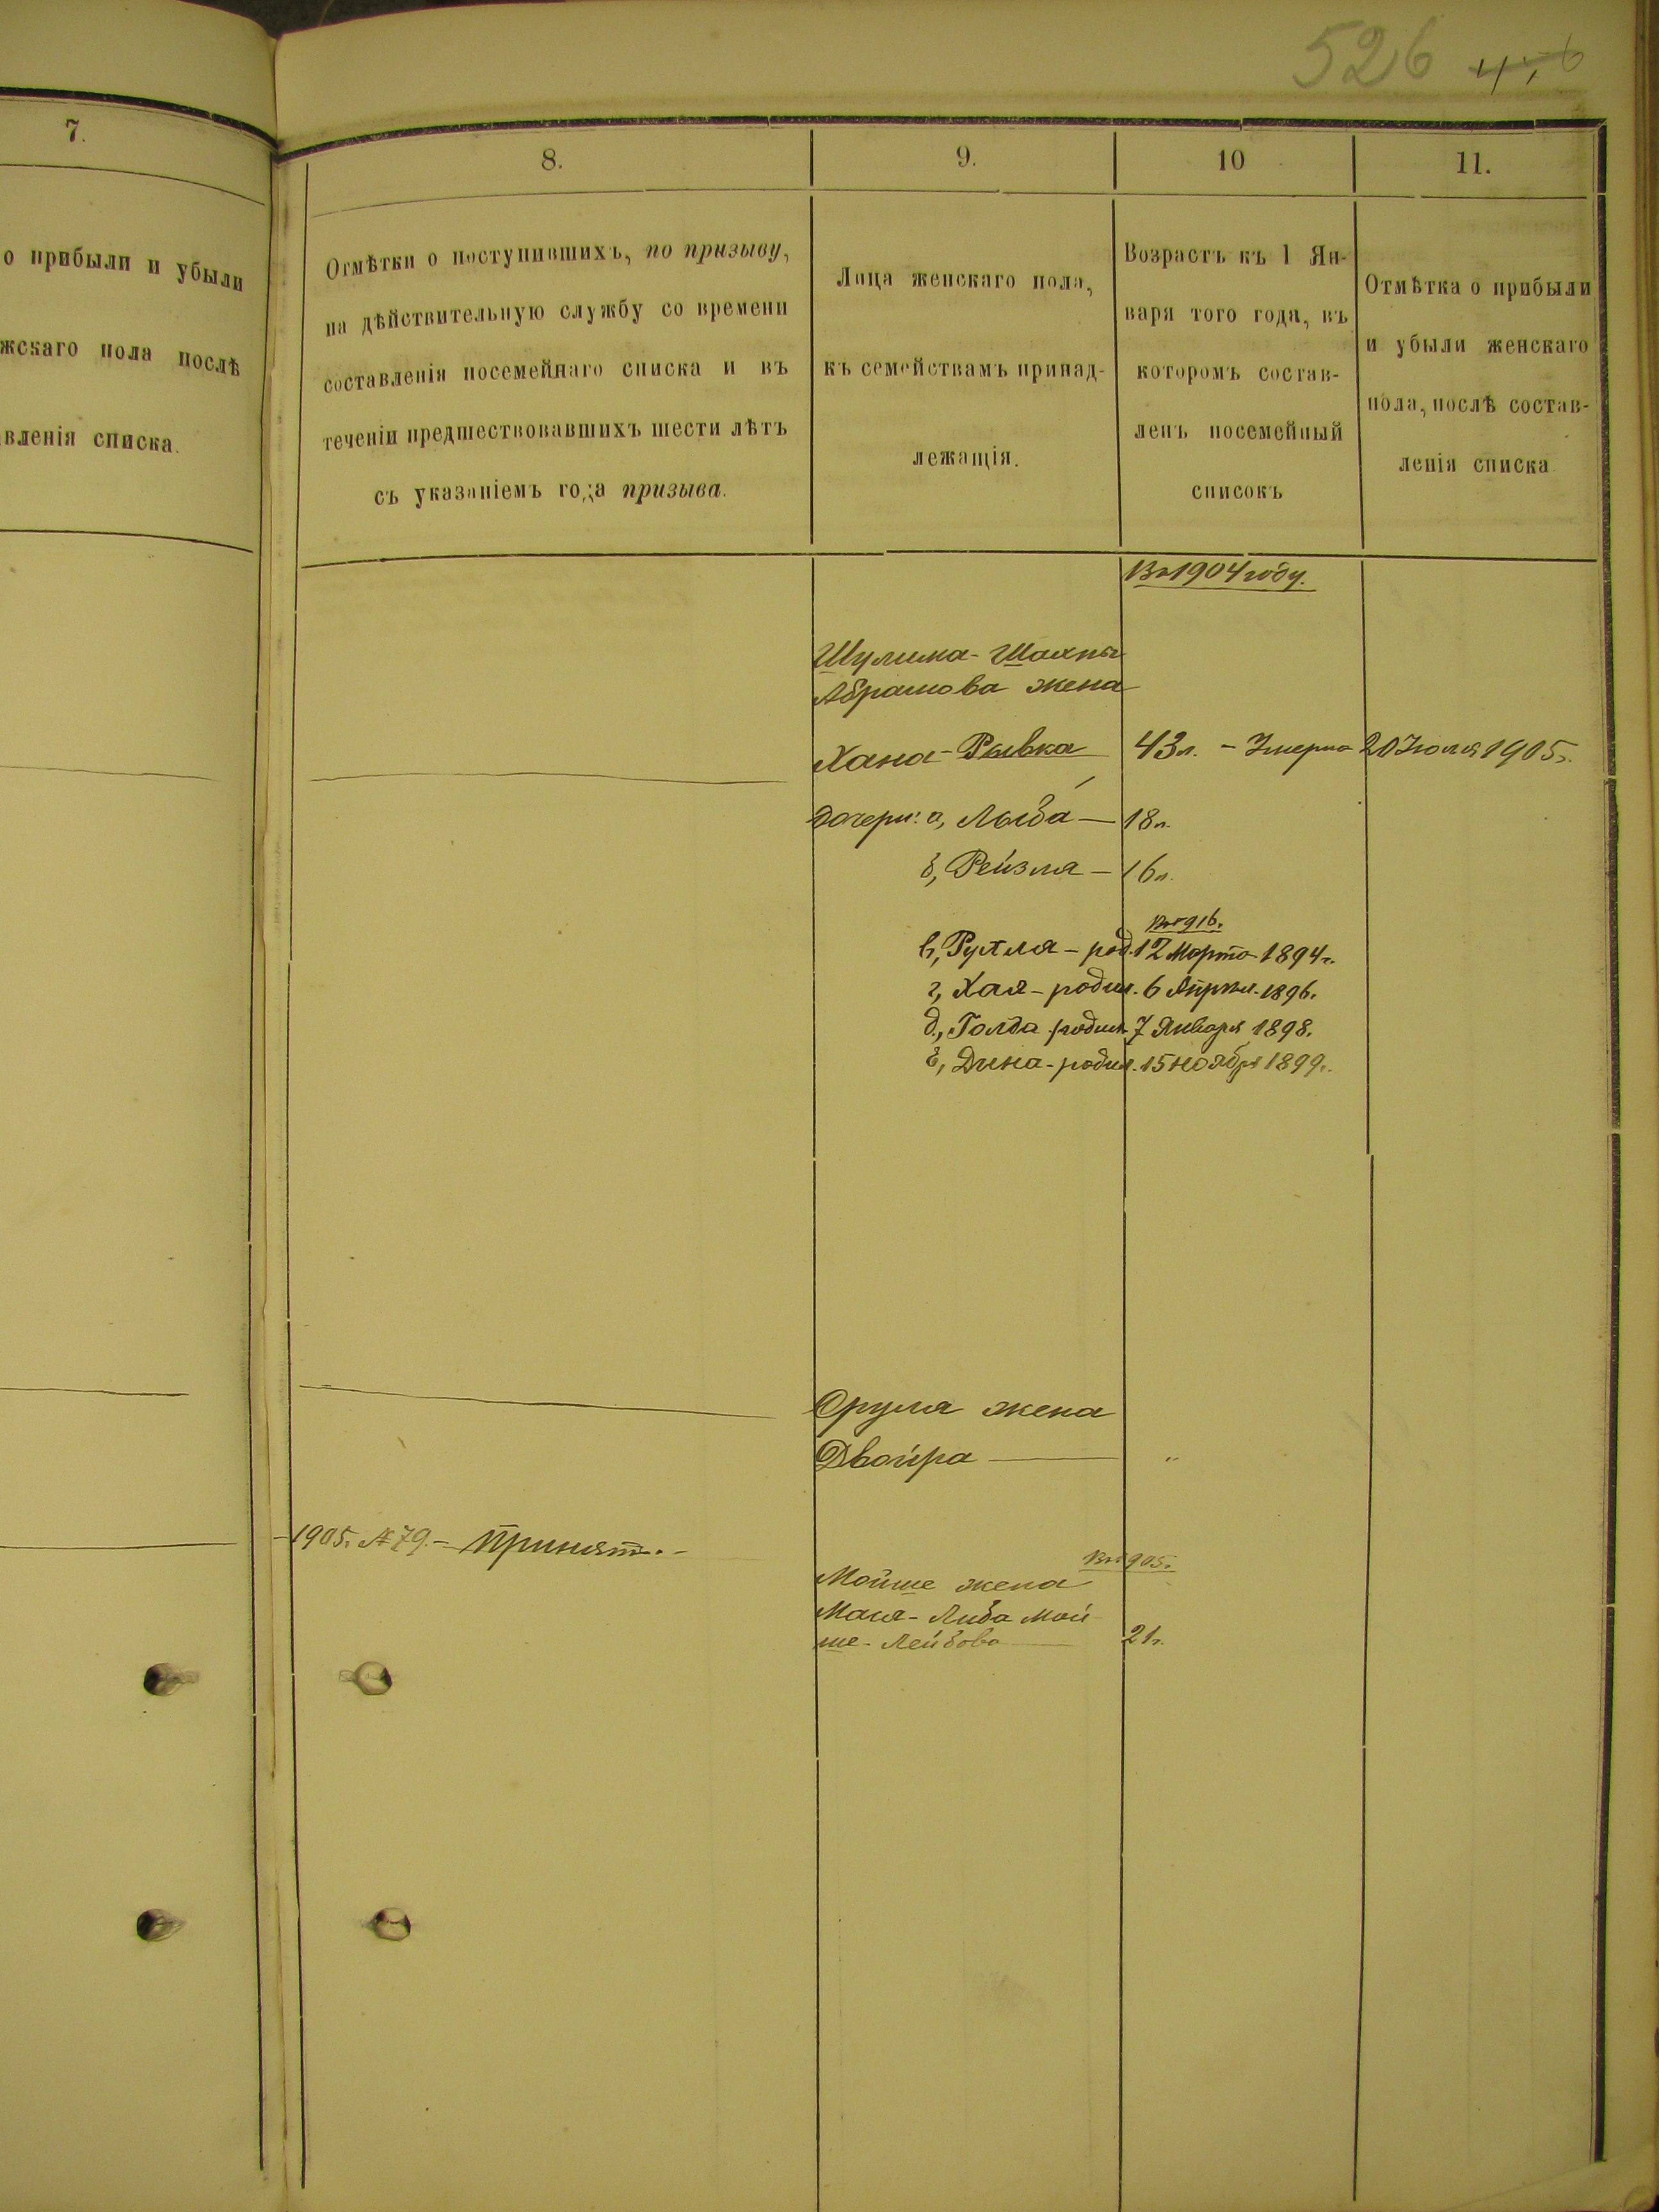 526
7.
о прибыли и убыли
жскаго пола послѣ
вленія списка.
8.
Отмѣтки о поступившихъ, по призыву,
на дѣйствительную службу со времени
составленія посемейнаго списка и въ
теченіи предшествовавшихъ шести лѣтъ
съ указаніемъ года призыва.
9.
Лица женскаго пола,
къ семействамъ принад-
лежащія.
10
Возрастъ къ 1 Ян-
варя того года, въ
которомъ состав-
ленъ посемейный
списокъ
11.
Отмѣтка о прибыли
и убыли женскаго
пола, послѣ состав-
ленія списка
Въ 1904 году.
Шулима-Шахны
Абрамова жена
Хана-Рывка 43 л. - Умерла 20 Іюля 1905 г.
дочери: а, Лыба — 18 л.
б, Рейзля — 16 л.
в, Рухля - род. 12 Марта 1894 г.
г, Хая - родил. 6 Апрѣл. 1896.
д, Голда родил. 7 Января 1898.
е, Дина - родил. 15 Ноября 1899 г.
Сруля жена
Двойра — "
-1905 г. № 79. - Принят. -
Въ 1905 г.
Мойше жена
Мася-Либа Мой
ше-Лейбова — 21 г.